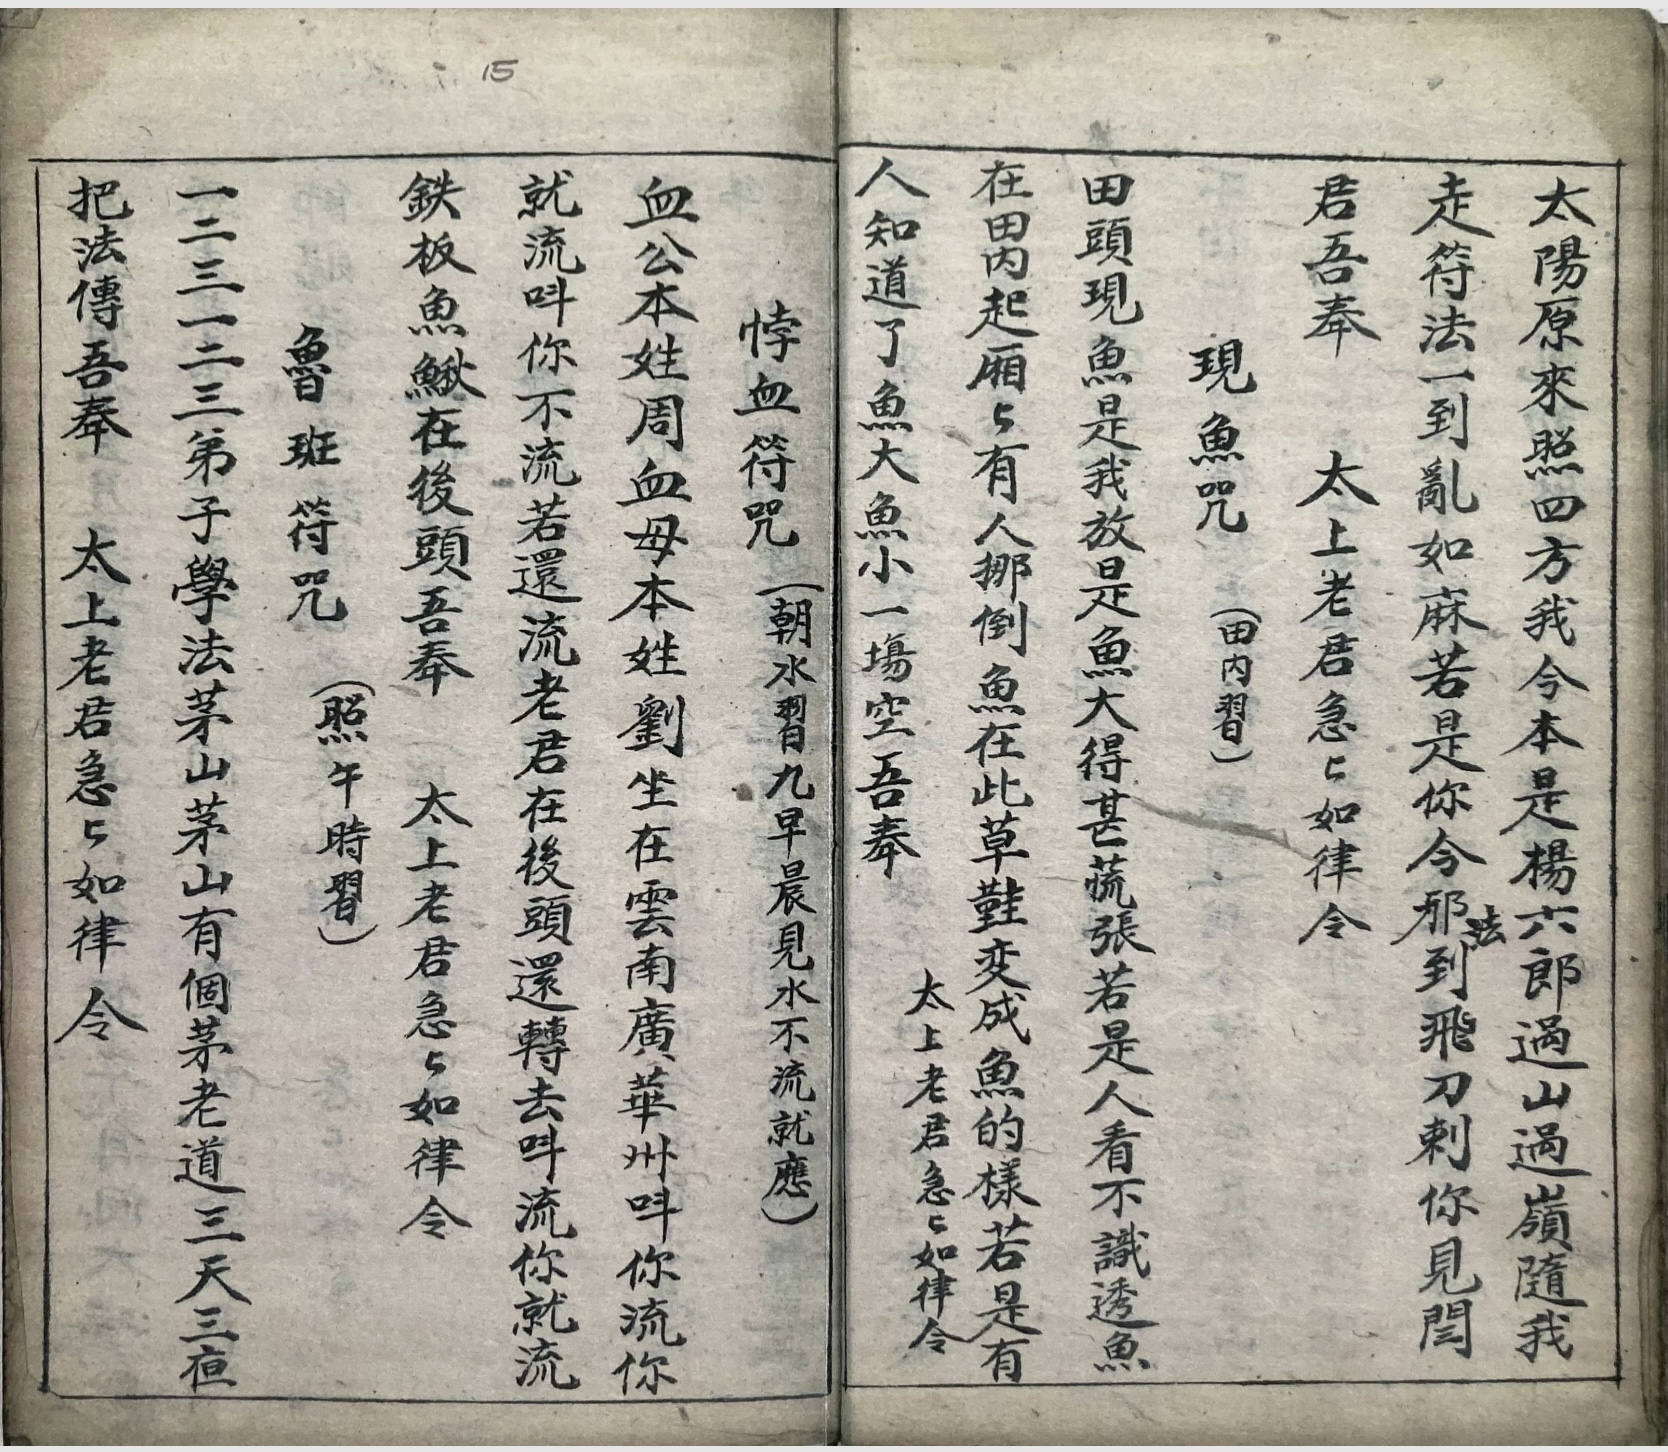 太陽原來照四方我今本是楊六郎過山過嶺隨我
走符法一到亂如麻若是你今邪法到飛刀刺你見閆
君吾奉　太上老君急々如律令
現魚咒　(田内習)
田頭現魚是我放是魚大得甚蔬張若是人看不識透魚
在田内起廂々有人挪倒魚在此草鞋变成魚的樣若是有
人知道了魚大魚小一塲空吾奉　太上老君急々如律令
悖血符咒　(朝水習九早晨見水不流就應)
血公本姓周血母本姓劉坐在雲南廣華州呌你流你
就流呌你不流若還流老君在後頭還轉去呌流你就流
鉄板魚鰍在後頭吾奉　太上老君急々如律令
魯班符咒　(照午時習)
一二三一二三弟子學法茅山茅山有個茅老道三天三夜
把法傳吾奉　太上老君急々如律令
15